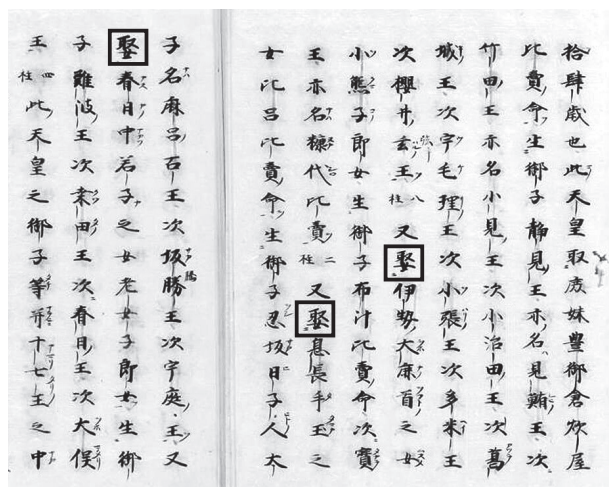 拾肆歳也此天皇取庶妹豊御倉炊屋
比賣命生御子静見王亦名見鮪王次
竹田王亦名小見王次小治田王次葛
城王次宇毛理王次小張王次多米王
次櫻井玄王八柱又娶伊勢大鹿首之女
小熊子郎女生御子布汁比賣命次寶
王亦名糠代比賣二柱又娶息長手王之
女比呂比賣命生御子忍坂日子人太
子名麻呂古王次坂勝王次宇庭王又
娶春日中若子之女老女子郎女生御
子難波王次桒田王次春日王次大俣
王四柱此天皇之御子等并十七王之中